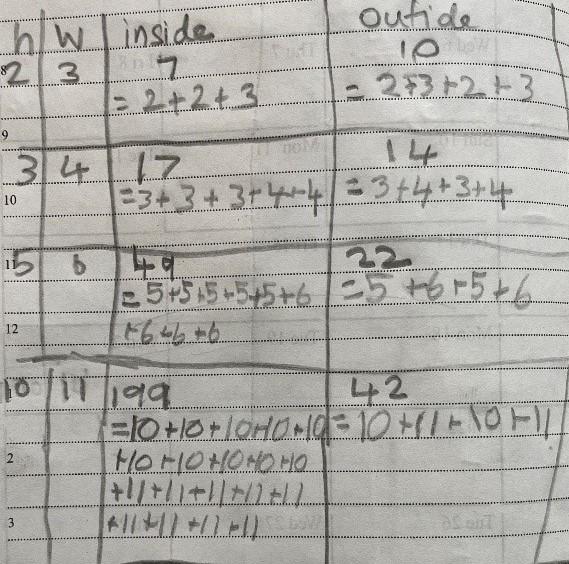 h w inside outide
2 3 7 10
8
= 2+2+3 = 2+3+2+3
9
3 4 17 14
10 =3+3+3+4+4 = 3+4+3+4
11 5 6 49 22
=5+5+5+5+5+6 =5+6+5+6
12 +6+6+6
10 11 199 42
=10+10+10+10+10 =10+11+10+11
2 +10+10+10+10+10
+11+11+11+11+11
3 +11+11+11+11